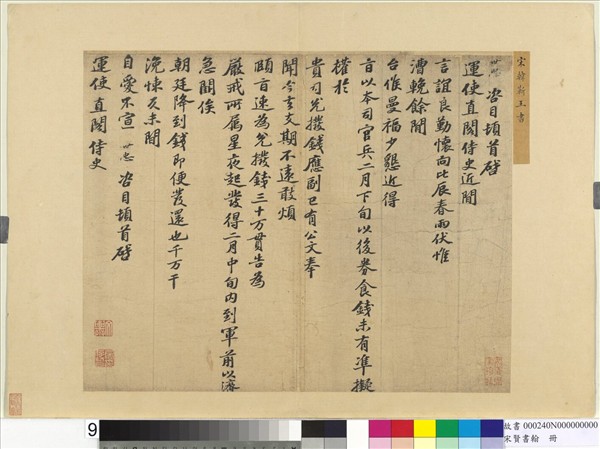 宋韓蘄王書
世忠 咨目頓首啟
運使直閣侍史近聞
言誼良勤懷向比辰春雨伏惟
漕輓餘閒
台候曼福少懇近得
旨以本司官兵二月下旬以後券食錢未有準擬
權於
貴司兌撥錢應副已有公文奉
聞今去支期不遠敢煩
頤旨速為兌撥錢三十万貫告為
嚴戒所属星夜起發得二月中旬內到軍前以濟
急闕俟
朝廷降到錢即便發還也千万千
浼悚 未間
自愛不宣 世忠 咨目頓首啟
運使直閣侍史
9
故書 000240N000000000
宋賢書翰 冊